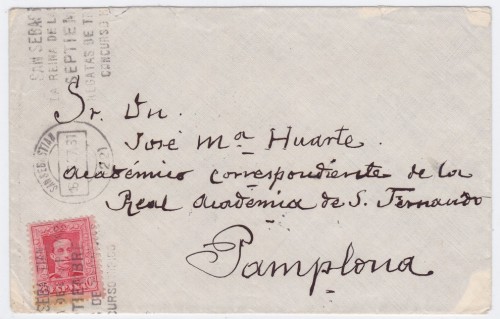 SAN SEBAS
LA REINA DEL
SEPTIEM
REGATAS DE T
CONCURSO
SAN SEBASTIAN
Sr. Dn.
José Mª Huarte
Académico correspondiente de la
Real Academia de S. Fernando
Pamplona